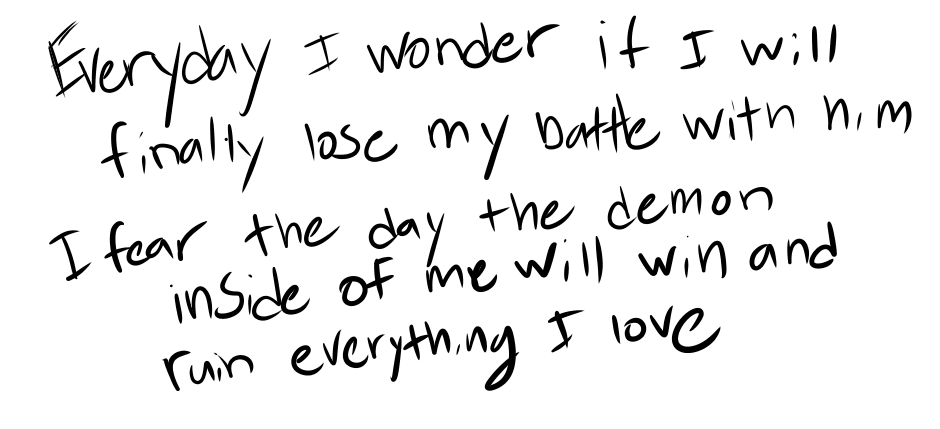 Everyday I wonder if I will
finally lose my battle with him
I fear the day the demon
inside of me will win and
ruin everything I love